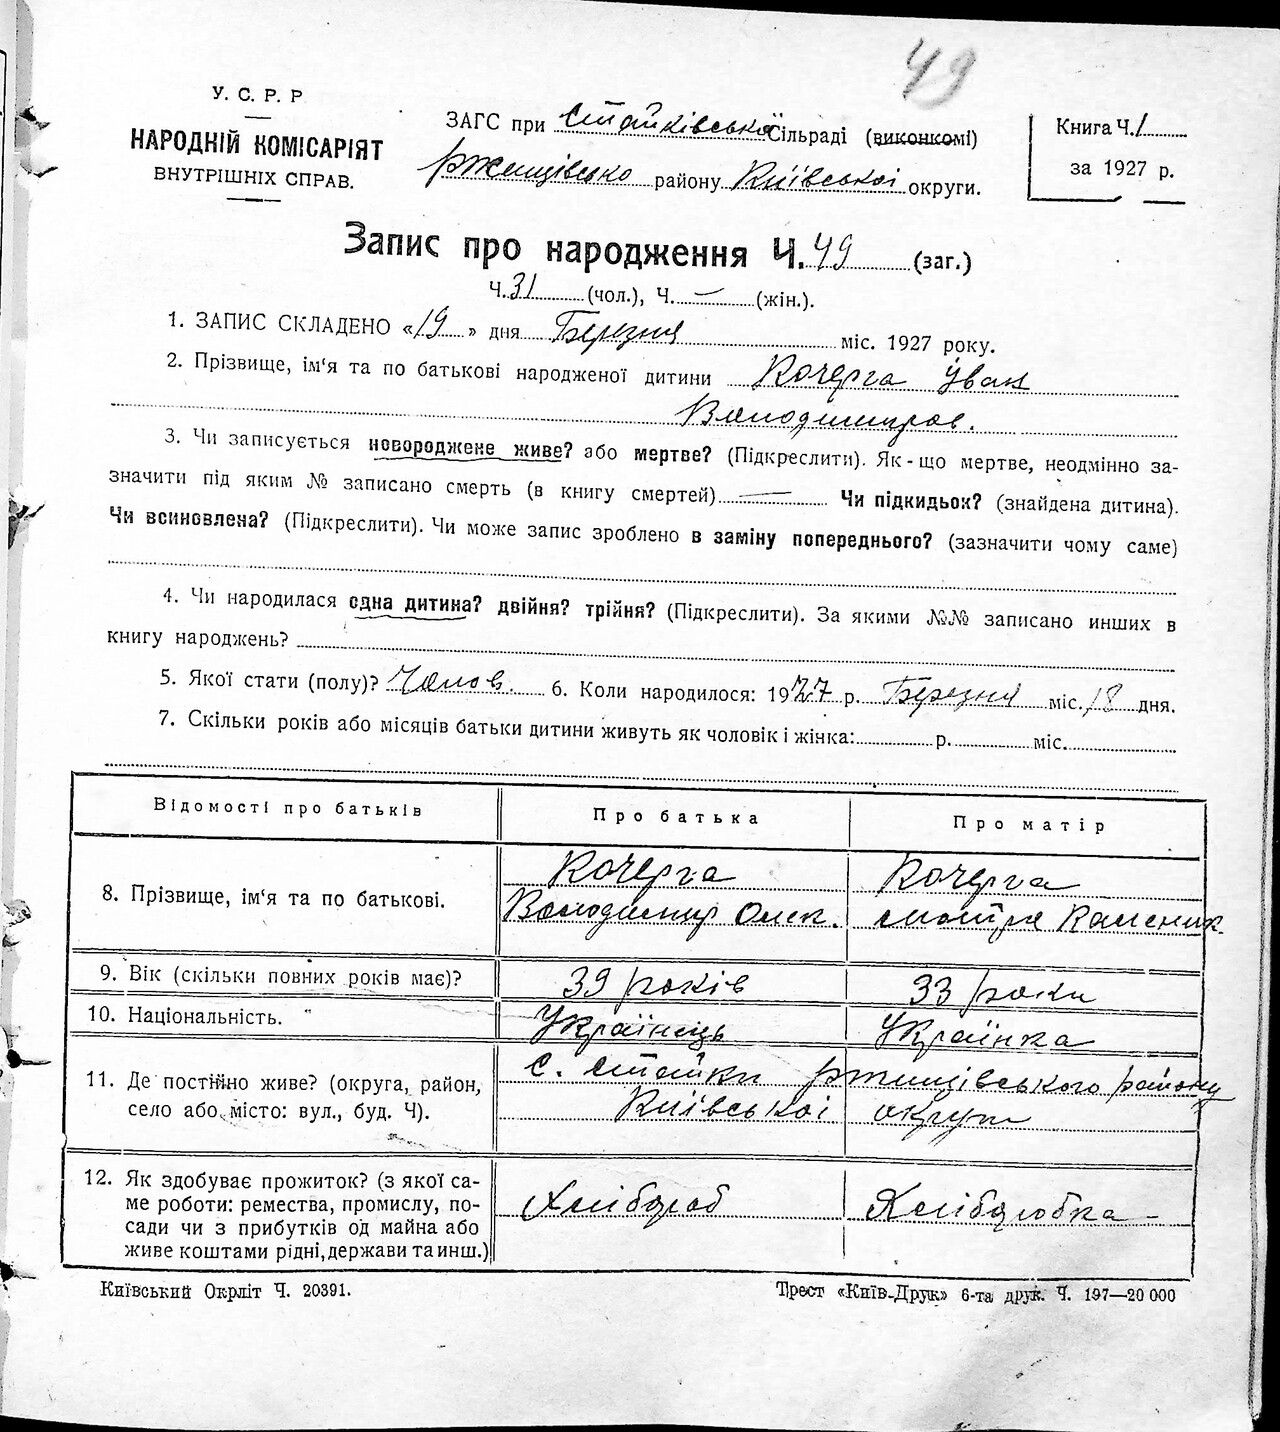 49
У. С. Р. Р
НАРОДНІЙ КОМІСАРІЯТ
ВНУТРІШНІХ СПРАВ.
ЗАГС при Стайківська Сільраді (виконкомі)
Ржищівсько району Київської округи.
Книга Ч. 1
за 1927 р.
Запис про народження Ч. 49 (заг.)
Ч. 31 (чол.), Ч. — (жін.).
1. ЗАПИС СКЛАДЕНО «19» дня Березня міс. 1927 року.
2. Прізвище, ім‘я та по батькові народженої дитини Кочерга Іван
Володимиров.
3. Чи записується новороджене живе? або мертве? (Підкреслити). Як-що мертве, неодмінно за-
значити під яким № записано смерть (в книгу смертей) — Чи підкидьок? (знайдена дитина).
Чи всиновлена? (Підкреслити). Чи може запис зроблено в заміну попереднього? (зазначити чому саме)
4. Чи народилася одна дитина? двійня? трійня? (Підкреслити). За якими №№ записано инших в
книгу народжень?
5. Якої стати (полу)? Чолов. 6. Коли народилося: 1927 р. Березня міс. 18 дня.
7. Скільки років або місяців батьки дитини живуть як чоловік і жінка: р. міс.
Відомості про батьків Про батька Про матір
8. Прізвище, ім‘я та по батькові. Кочерга Кочерга
Володимир Олек. Мотря
9. Вік (скільки повних років має)? 39 років 33 роки
10. Національність. Українець Українка
11. Де постійно живе? (округа, район, с. Стайки Ржищівського району
село або місто: вул., буд. Ч). Київської округи
12. Як здобуває прожиток? (з якої са-
ме роботи: ремества, промислу, по- Хлібороб Хліборобка
сади чи з прибутків од майна або
живе коштами рідні, держави та инш.)
Київський Окрліт Ч. 20391. Трест «Київ-Друк» 6-та друк. Ч. 197—20 000